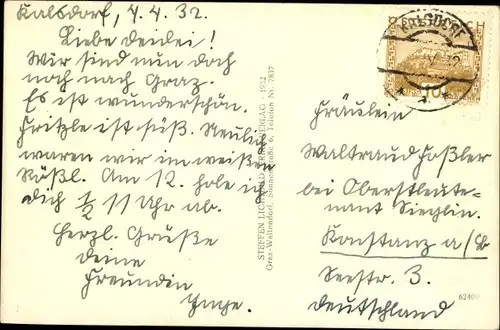 Kalsdorf, 4.4.32.
Liebe deidei!
Wir sind nun doch
noch nach Graz.
Es ist wunderschön.
Fritzle ist süß. Neulich
waren wir im weißen
Rößl. Am 12. hole ich
dich ½ 11 Uhr ab.
Herzl. Grüße
deine
Freundin
Inge.
STEFFEN LICHTBILD, 1932
Graz-Waltendorf, Telefon Nr. 7837
KALSDORF
Fräulein
Waltraud Haßler
bei Oberstleute-
nant Sieglin.
Konstanz a/B
Seestr. 3.
Deutschland
62400